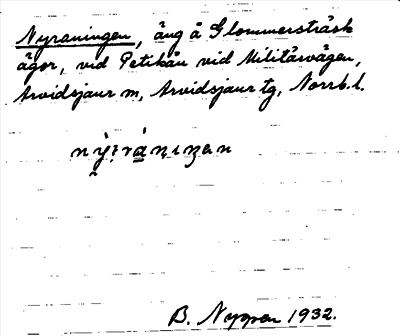 Nyraningen, äng å Glommersträsk
ägor, vid Petikån vid Militärvägen,
Arvidsjaur m, Arvidsjaur tg, Norrb. l.
B. Nyppen 1932.